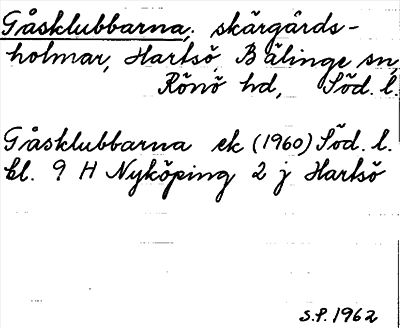 Gåsklubbarna, skärgårds-
holmar, Hartsö, Bälinge sn,
Rönö hd, Söd. l.
Gåsklubbarna ek (1960) Söd. l.
bl. 9 H Nyköping 2 j Hartsö
S.P. 1962